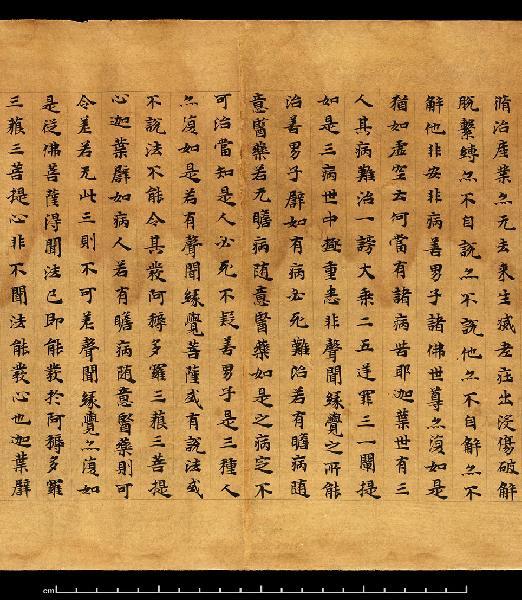 脩治產業亦无去來生滅老壯出沒傷破解
脫繫縛亦不自說亦不說他亦不自解亦不
解他非安非病善男子諸佛世尊亦復如是
猶如虛空云何當有諸病苦耶迦葉世有三
人其病難治一謗大乘二五逆罪三一闡提
如是三病世中極重悉非聲聞緣覺之所能
治善男子譬如有病必死難治若有瞻病隨
意醫藥若无瞻病隨意醫藥如是之病定不
可治當知是人必死不疑善男子是三種人
亦復如是若有聲聞緣覺菩薩或有說法或
不說法不能令其發阿耨多羅三藐三菩提
心迦葉譬如病人若有瞻病隨意醫藥則可
令差若无此三則不可差聲聞緣覺亦復如
是從佛菩薩得聞法已即能發於阿耨多羅
三藐三菩提心非不聞法能發心也迦葉譬
cm